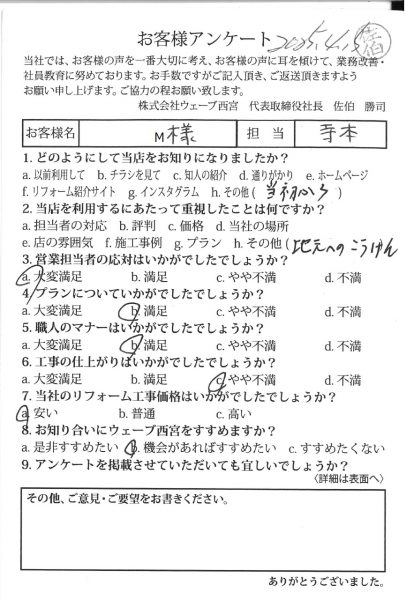 お客様アンケート 2025.4.15 佐伯
当社では、お客様の声を一番大切に考え、お客様の声に耳を傾けて、業務改善・
社員教育に努めております。お手数ですがご記入頂き、ご返送頂きますよう
お願い申し上げます。ご協力の程お願い致します。
株式会社ウェーブ西宮 代表取締役社長 佐伯 勝司
お客様名 M様 担当 寺本
1. どのようにして当店をお知りになりましたか?
a. 以前利用して b. チラシを見て c. 知人の紹介 d. 通りがかり e. ホームページ
f. リフォーム紹介サイト g. インスタグラム h. その他( 当初から )
2. 当店を利用するにあたって重視したことは何ですか?
a. 担当者の対応 b. 評判 c. 価格 d. 当社の場所
e. 店の雰囲気 f. 施工事例 g. プラン h. その他( 地元へのこうけん
3. 営業担当者の応対はいかがでしたでしょうか?
a. 大変満足 b. 満足 c. やや不満 d. 不満
4. プランについていかがでしたでしょうか?
a. 大変満足 b. 満足 c. やや不満 d. 不満
5. 職人のマナーはいかがでしたでしょうか?
a. 大変満足 b. 満足 c. やや不満 d. 不満
6. 工事の仕上がりはいかがでしたでしょうか?
a. 大変満足 b. 満足 c. やや不満 d. 不満
7. 当社のリフォーム工事価格はいかがでしたでしょうか?
a. 安い b. 普通 c. 高い
8. お知り合いにウェーブ西宮をすすめますか?
a. 是非すすめたい b. 機会があればすすめたい c. すすめたくない
9. アンケートを掲載させていただいても宜しいでしょうか?
〈詳細は表面へ〉
その他、ご意見・ご要望をお書きください。
ありがとうございました。